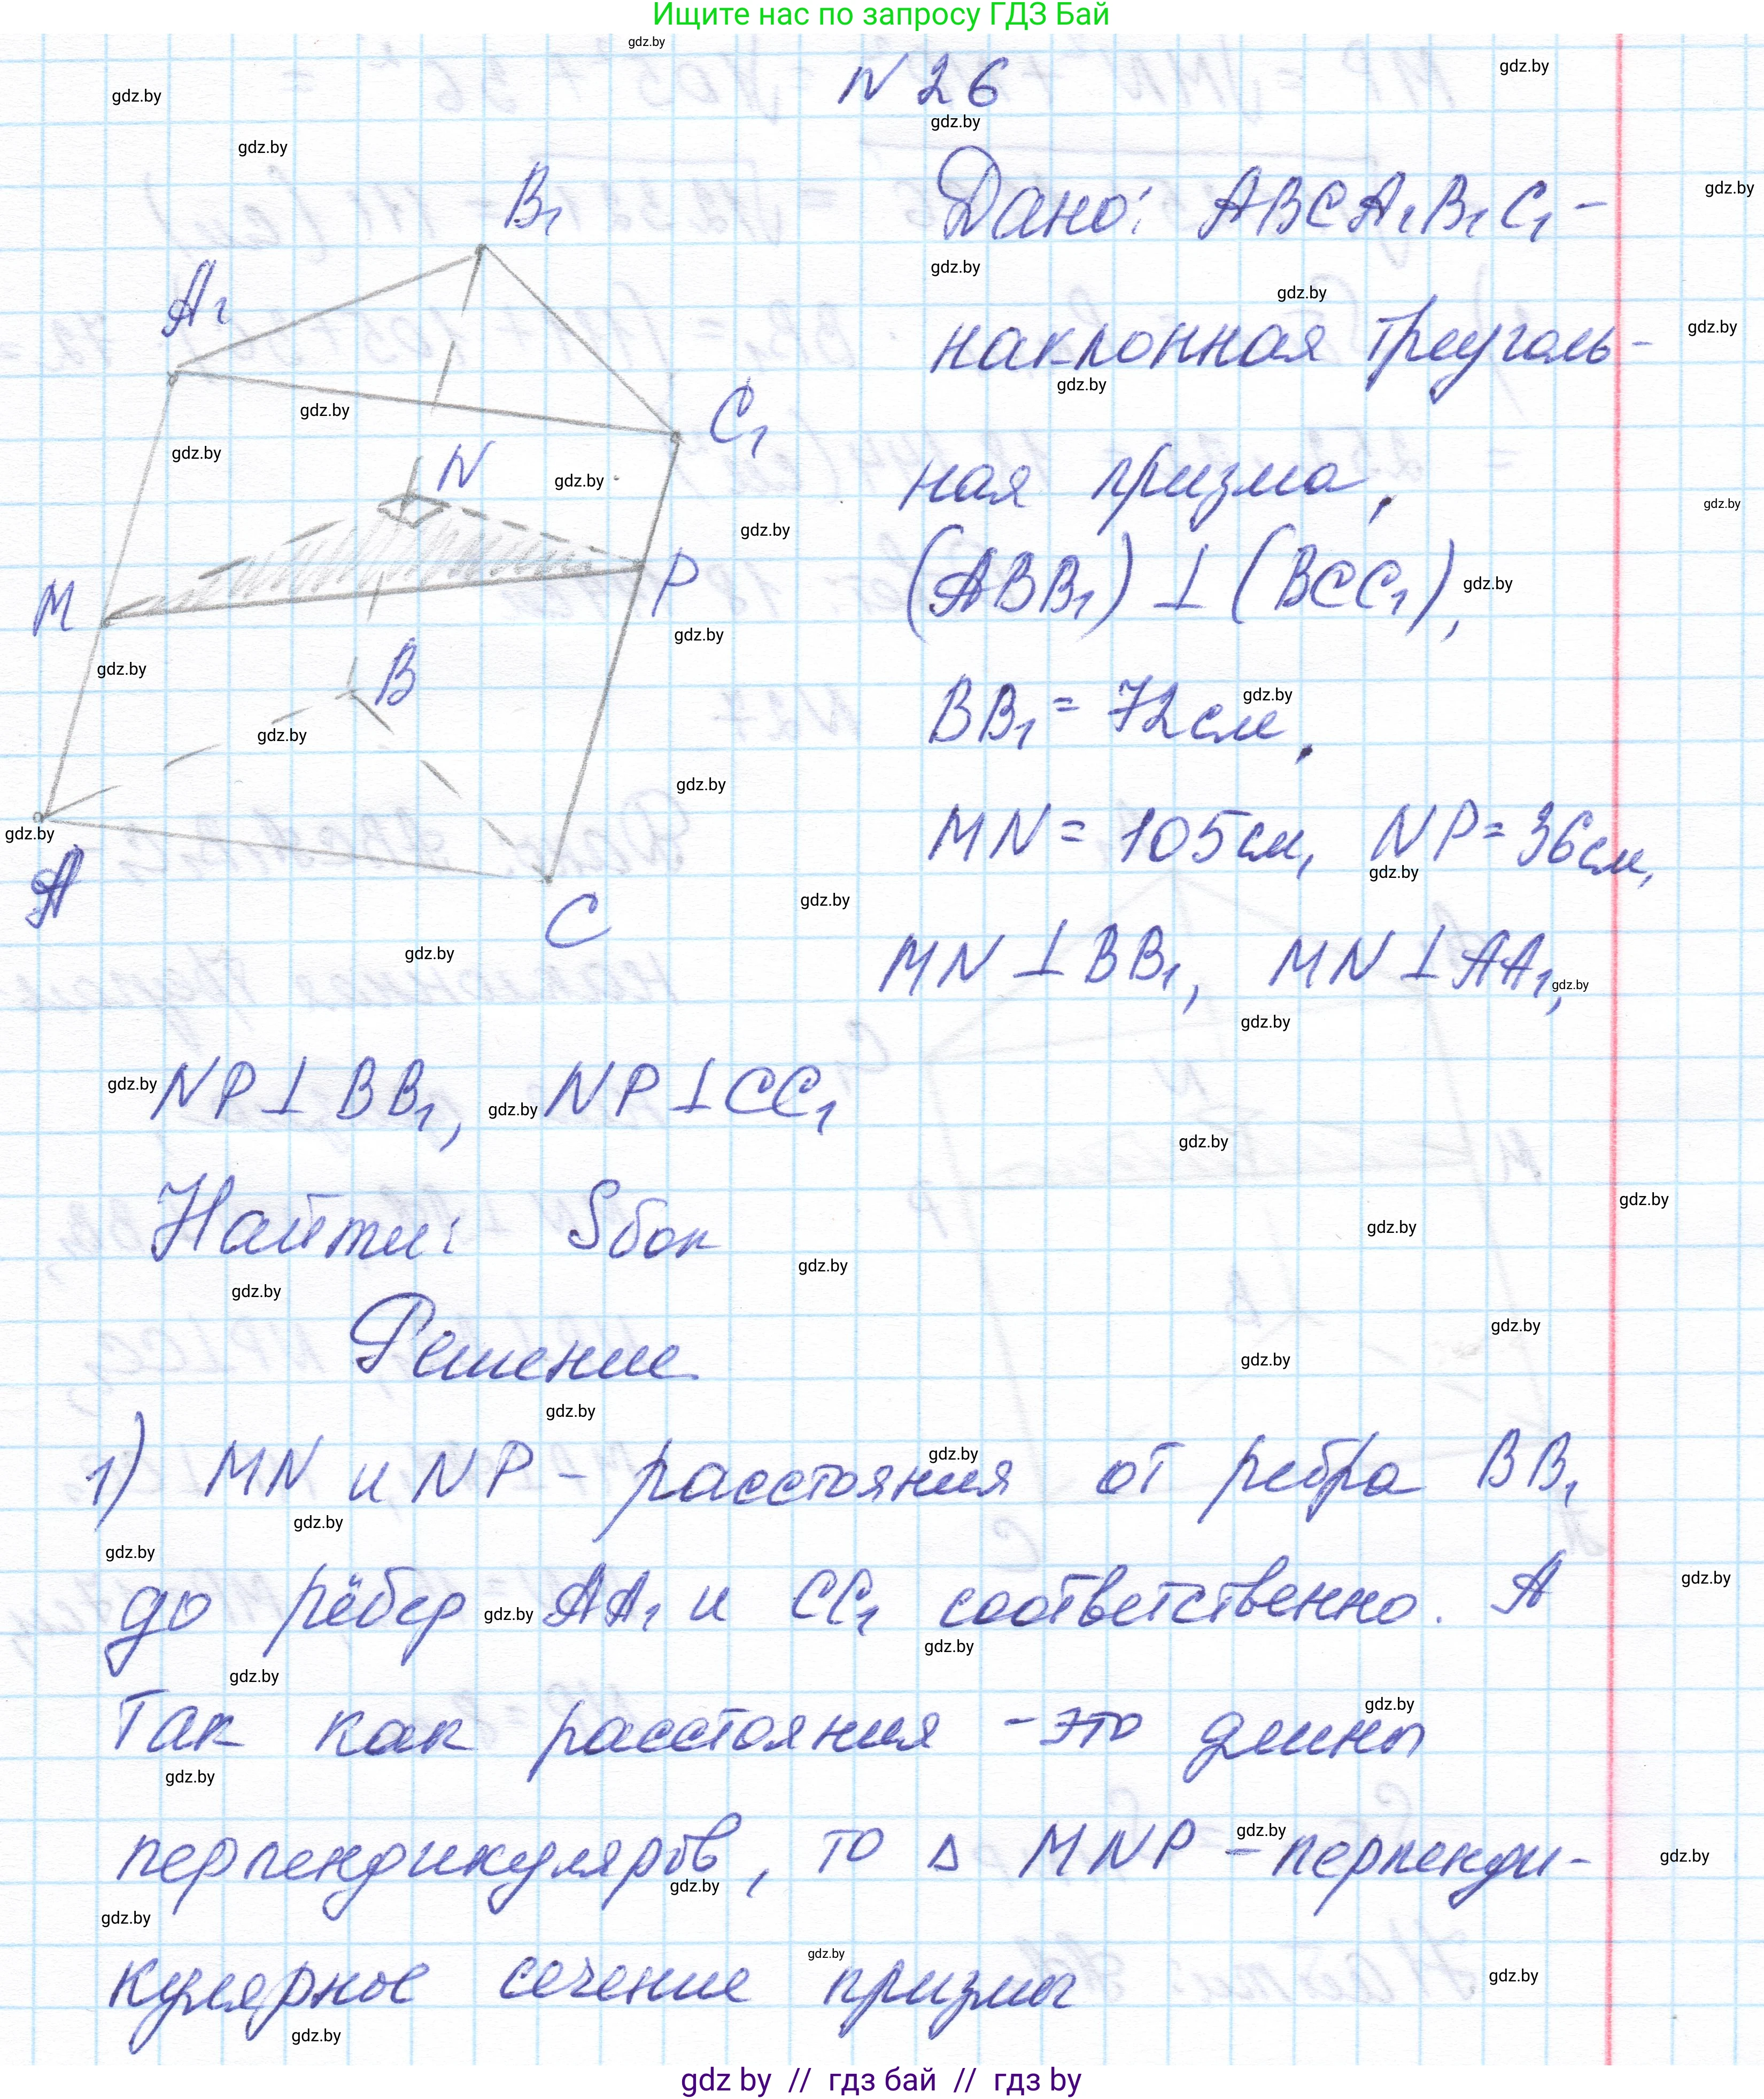 Ищите нас по запросу ГДЗ Бай
N 26
Дано: ABCA₁B₁C₁ –
наклонная треуголь-
ная призма,
(ABB₁) ⊥ (BCC₁),
BB₁ = 72см,
MN = 105см, NP = 36см,
MN ⊥ BB₁, MN ⊥ AA₁,
NP ⊥ BB₁, NP ⊥ CC₁
Найти: Sбок
Решение
1) MN и NP – расстояния от ребра BB₁
до рёбер AA₁ и CC₁ соответственно. А
так как расстояния – это длины
перпендикуляров, то Δ MNP – перпенди-
кулярное сечение призмы
B₁
A₁
C₁
N
M
P
B
A
C
gdz.by
gdz by // гдз бай // гдз by